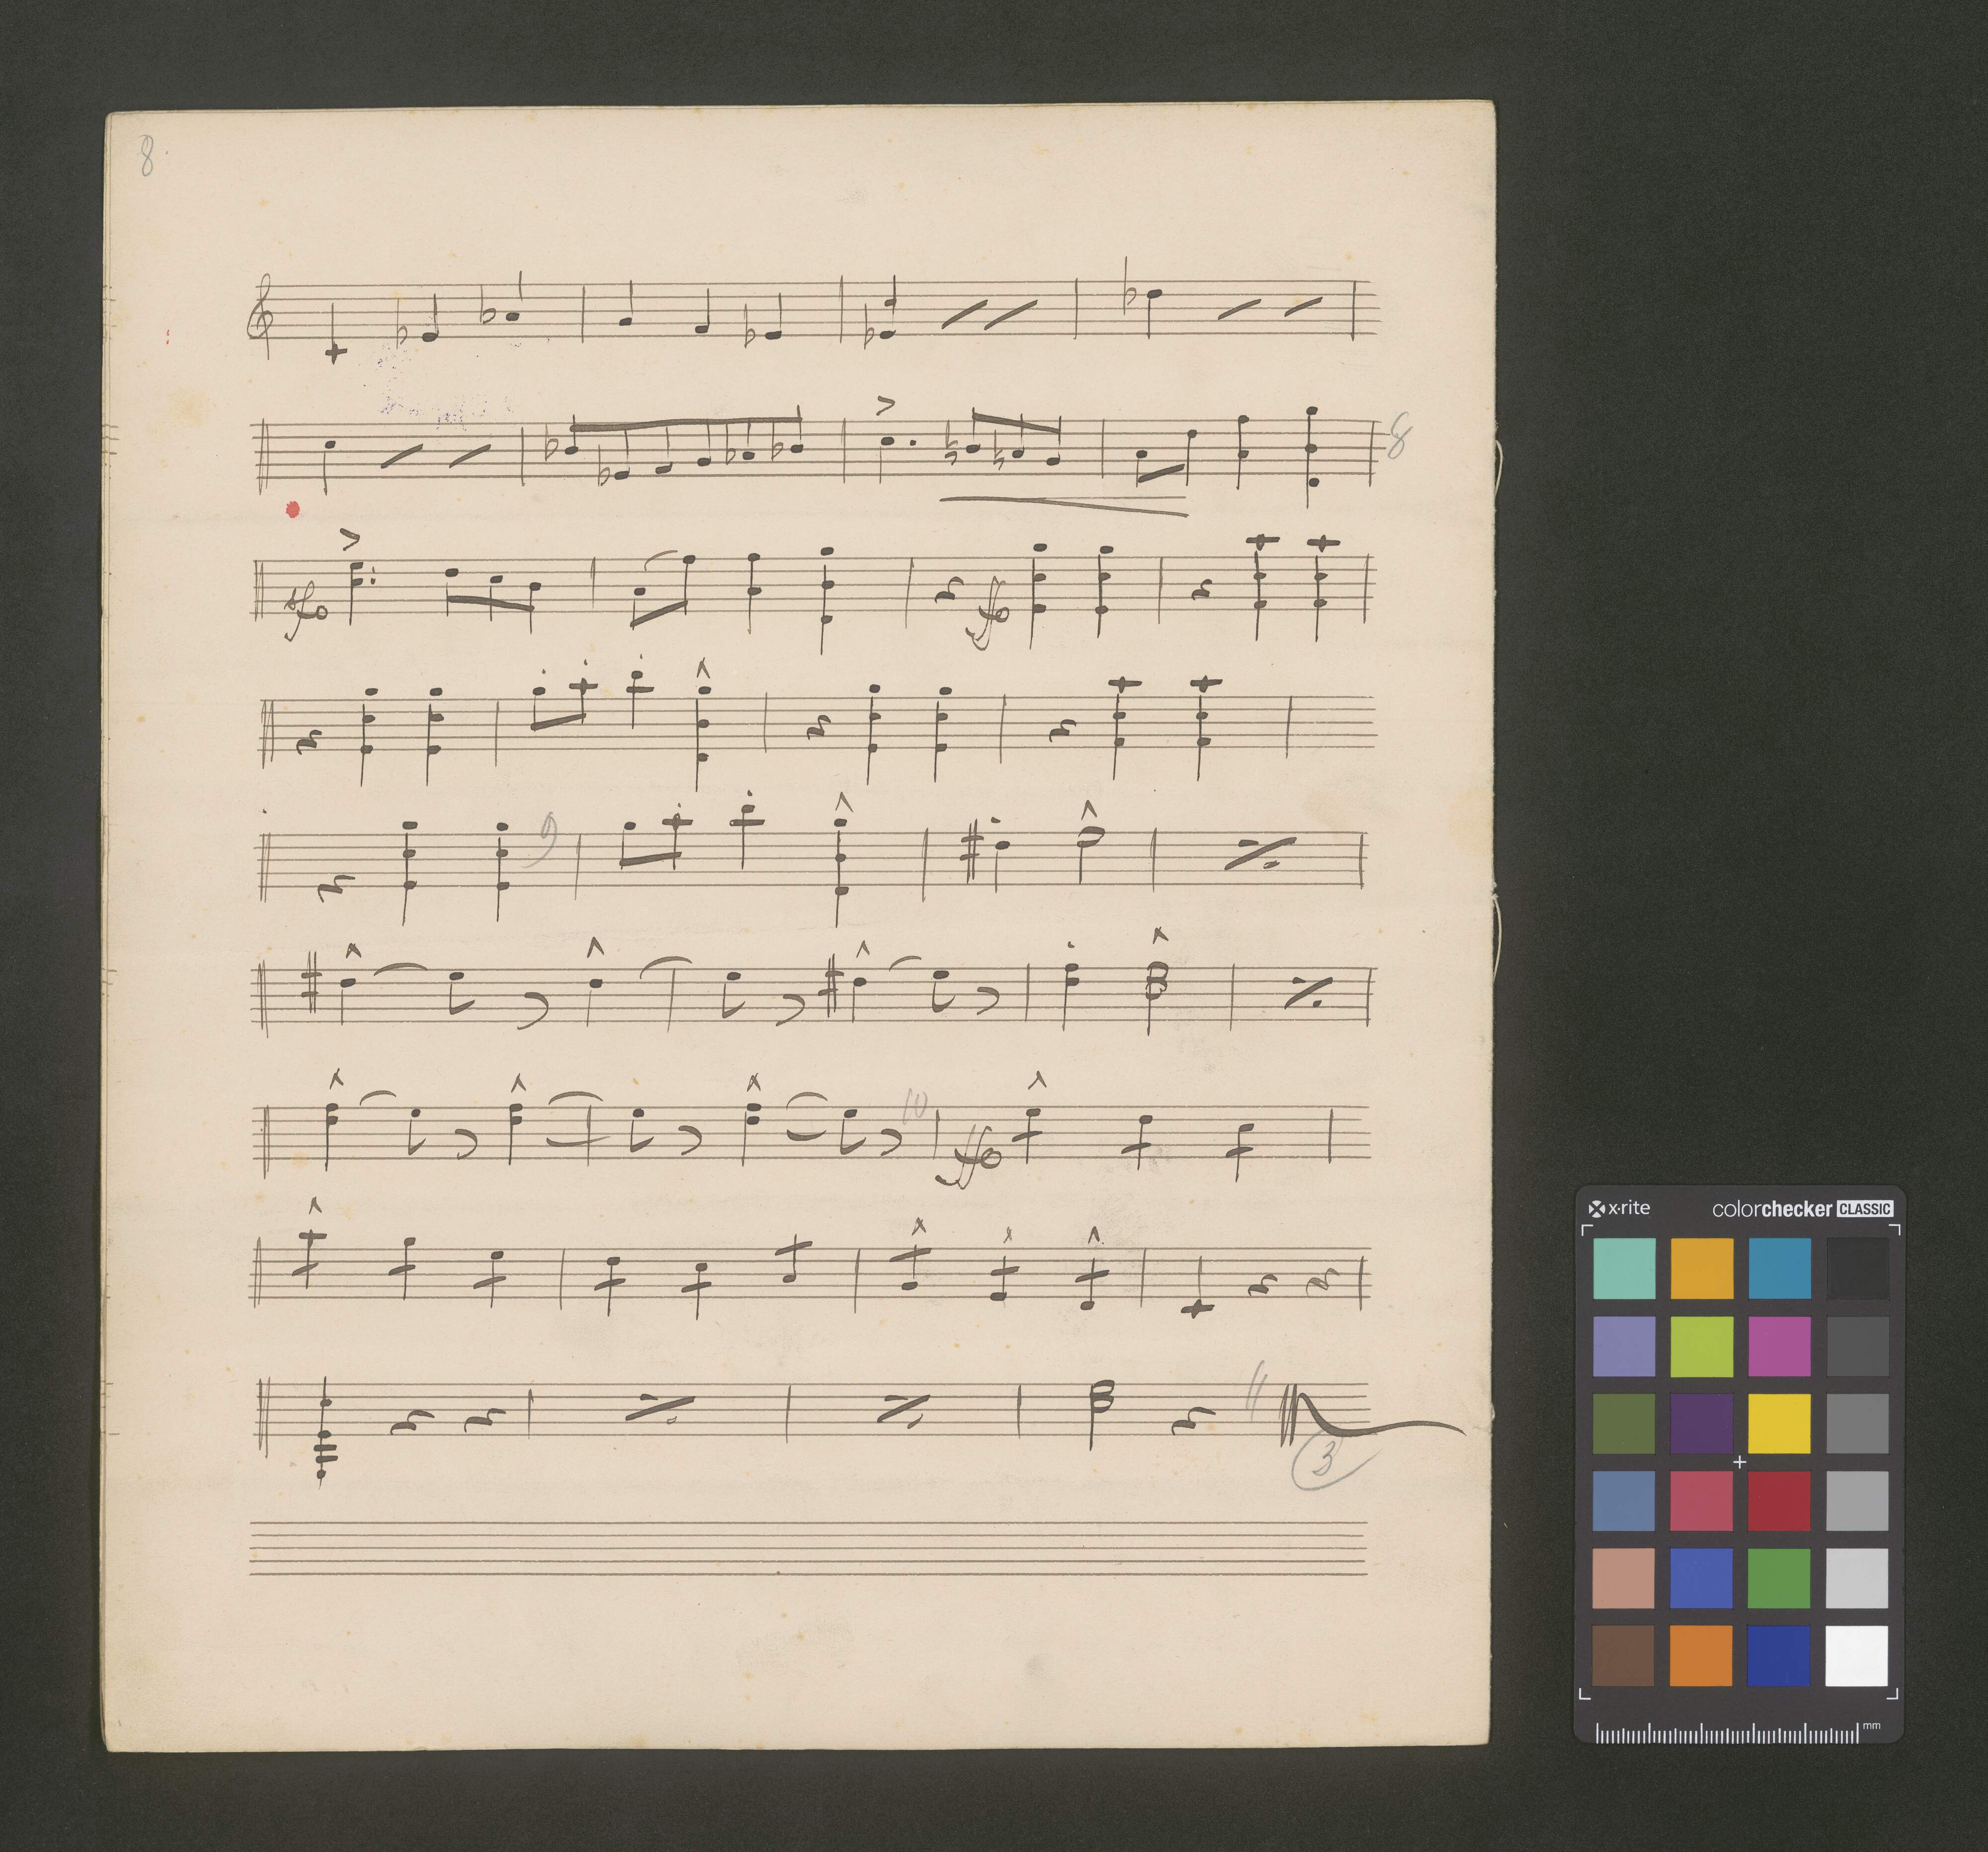 8
8
sfo
ffo
9
10
ffo
11
3
x·rite colorchecker CLASSIC
mm